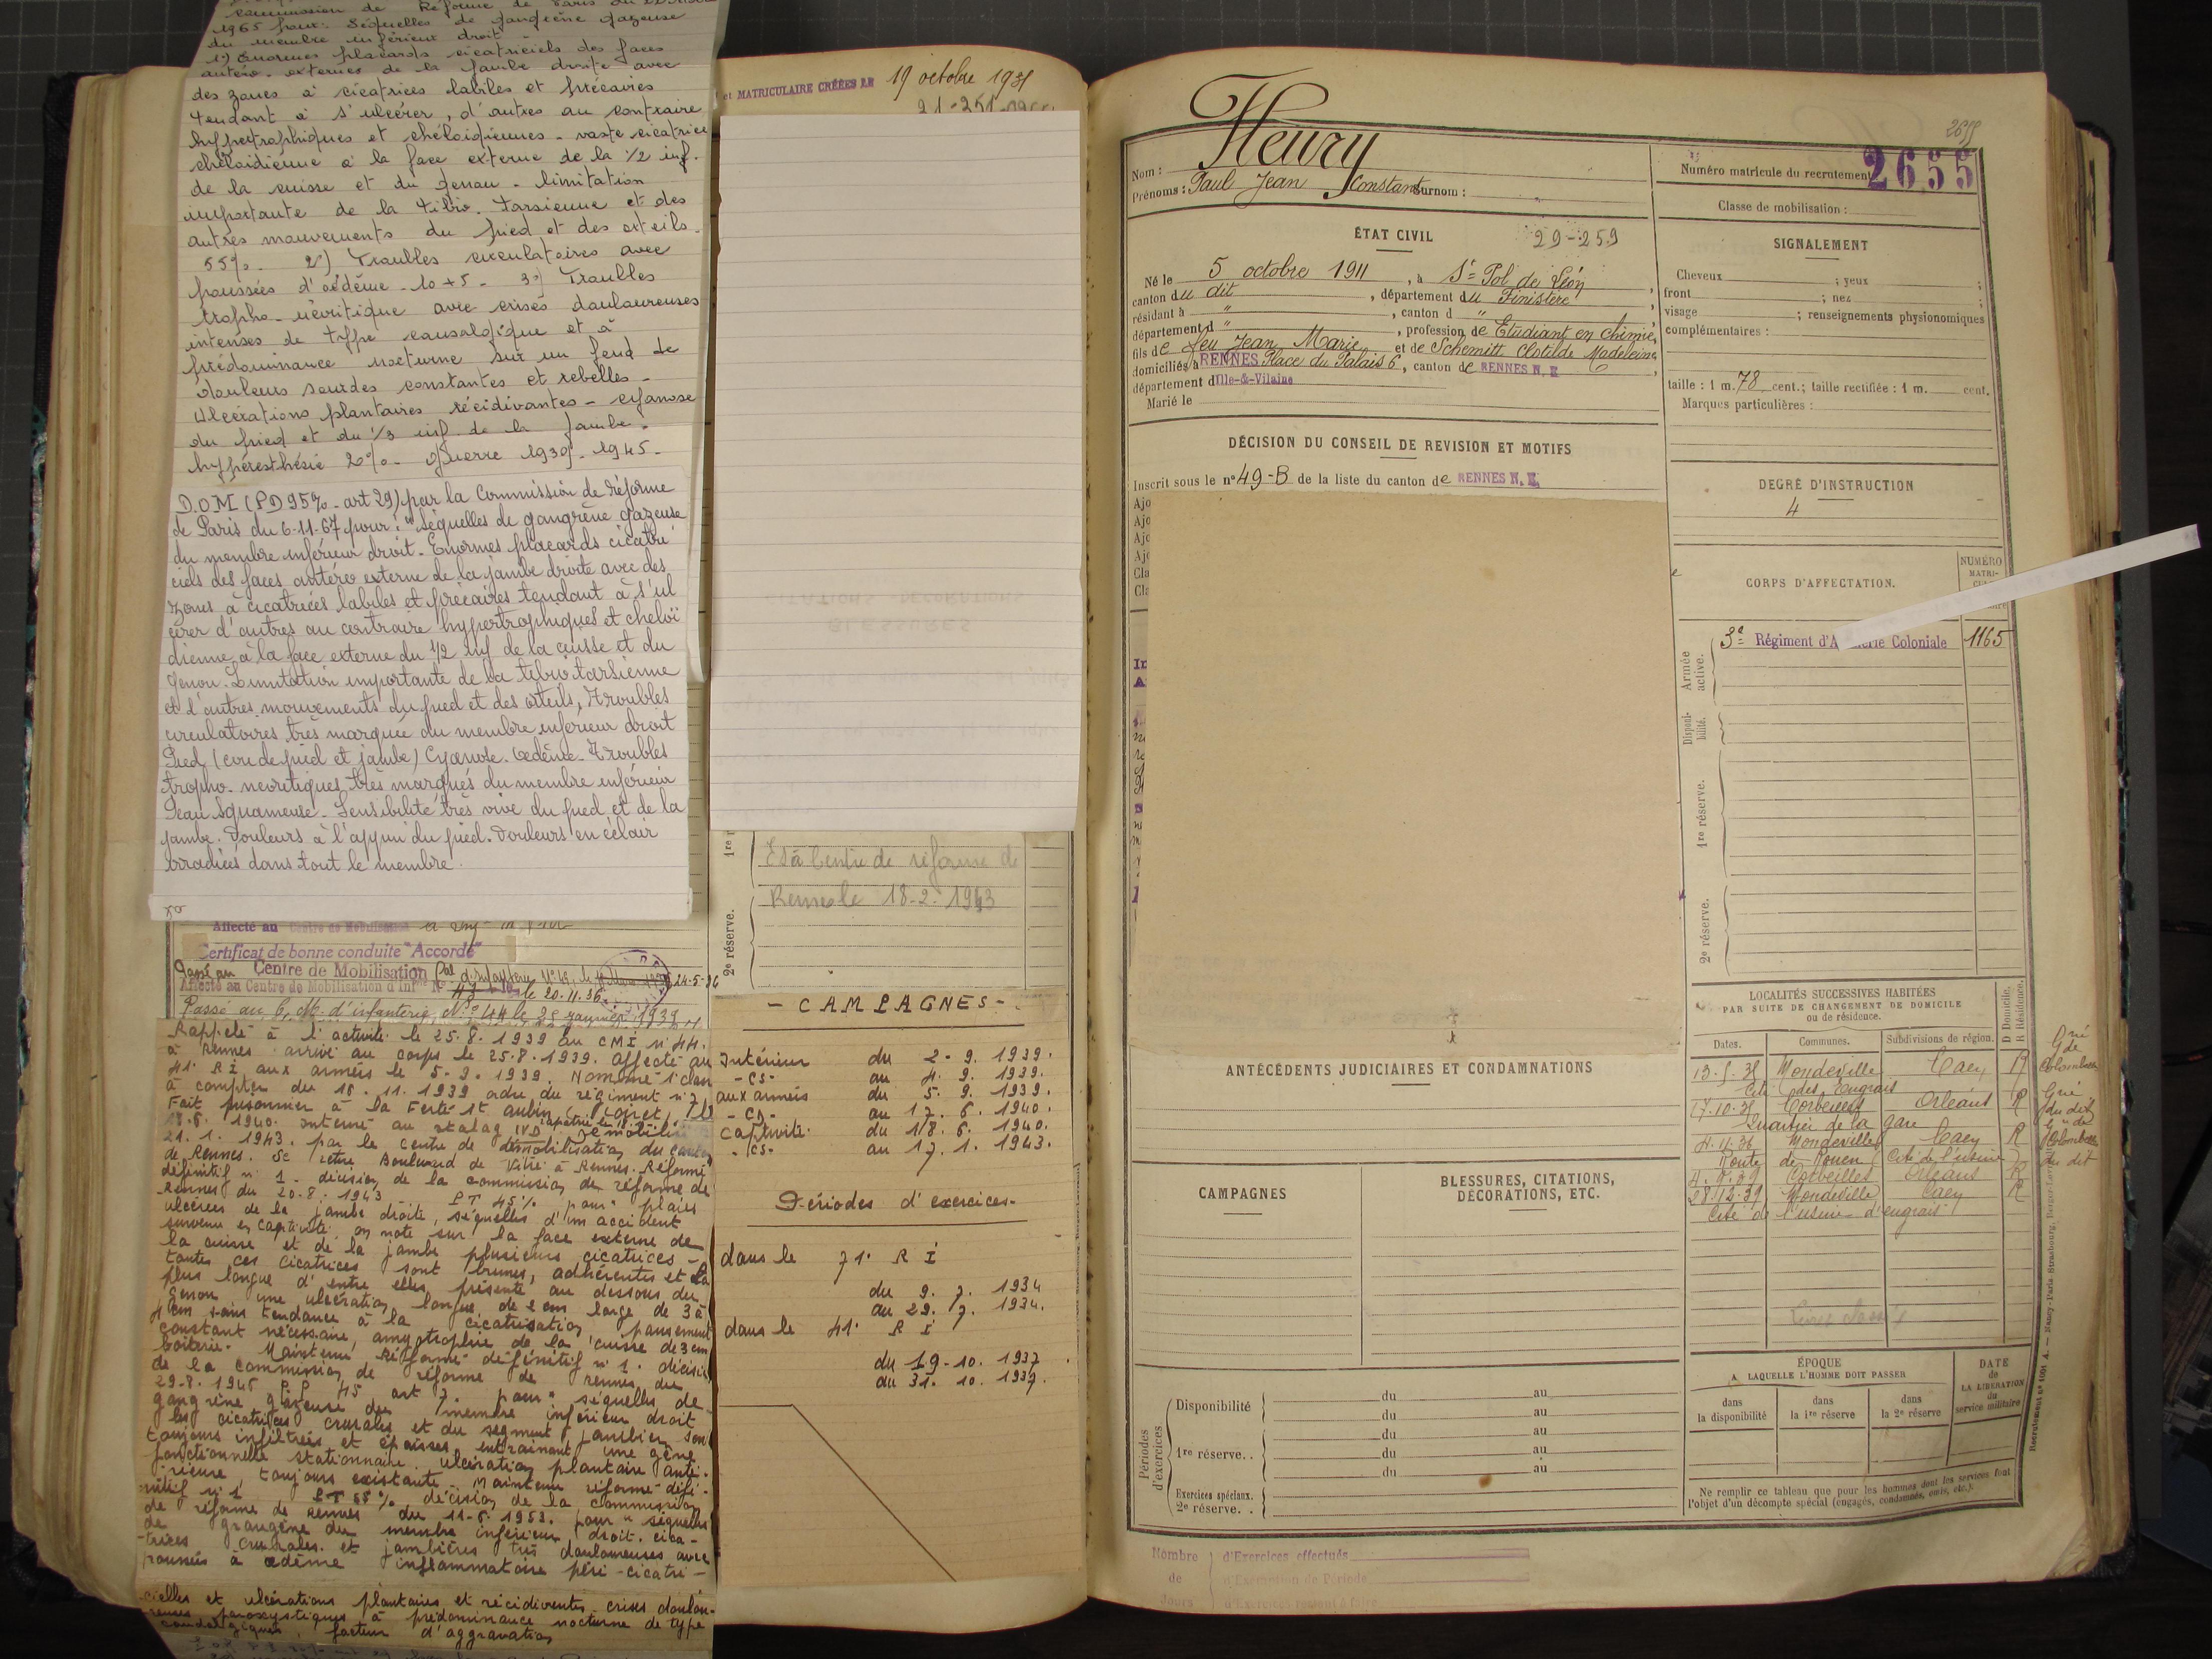 commission de Réforme de Paris du
1965 pour: Séquelles de gangrène gazeuse
du membre inférieur droit -
1) Enormes placards cicatriciels des faces
antéro-externes de la jambe droite avec
des zones à cicatrices labiles et précaires
tendant à s'ulcérer, d'autres au contraire
hypertrophiques et chéloïdiennes - vaste cicatrice
chéloïdienne à la face externe de la 1/2 inf.
de la cuisse et du genou - limitation
importante de la tibio-tarsienne et des
autres mouvements du pied et des orteils -
55% - 2°) Troubles circulatoires avec
poussées d'oedème - 10+5 - 3°) Troubles
tropho-névritique avec crises douloureuses
intenses de type causalgique et à
prédominance nocturne sur un fond de
douleurs sourdes constantes et rebelles -
Ulcérations plantaires récidivantes - cyanose
du pied et du 1/3 inf de la jambe -
hyperesthésie 20% - guerre 1939-1945 -
D.O.M (PD 95% - art 29) par la Commission de réforme
de Paris du 6-11-67 pour: "séquelles de gangrène gazeuse
du membre inférieur droit - Enormes placards cicatri
ciels des faces antéro externe de la jambe droite avec des
zones à cicatrices labiles et precaires tendant à s'ul
cérer d'autres au contraire hypertrophiques et cheloï
dienne à la face externe du 1/2 inf de la cuisse et du
genou. Limitation importante de la tibio tarsienne
et d'autres mouvements du pied et des orteils, Troubles
circulatoires très marquée du membre inférieur droit
Pied (cou de pied et jambe) Cyanose. Oedème. Troubles
tropho-nevritiques très marqués du membre inférieur
Peau squameuse - Sensibilité très vive du pied et de la
jambe. Douleurs à l'appui du pied. Douleurs en éclair
irradiées dans tout le membre.
Affecté au Centre de Mobilisation
Certificat de bonne conduite "Accordé"
Passé au Centre de Mobilisation d'Infanterie N° 42, le 24-5-36
Affecté au Centre de Mobilisation d'Inf N° 43 le 20.11.36
Passé au C. M. d'infanterie N° 44 le 25 janvier 1939
Rappelé à l'activité le 25.8.1939 au CMI n° 44.
à Rennes arrivé au corps le 25.8.1939. affecté au
41° RI aux armées le 5-9-1939. Nommé 1° clas
à compter du 16.11.1939 ordre du régiment n° 7
Fait prisonnier à la Ferté St Aubin (Loiret) le
18.6.1940. interné au stalag IVD rapatrié le démobilisé
21.1.1943. par le centre de démobilisation du canton
de Rennes. Se retire Boulevard de Vitré à Rennes. Réformé
définitif n° 1 - décision de la commission de réforme de
Rennes du 20-8-1943 PT 45% pour "plaies
ulcérées de la jambe droite, séquelles d'un accident
survenu en captivité. on note sur la face externe de
la cuisse et de la jambe plusieurs cicatrices -
toutes ces cicatrices sont brunes, adhérentes et la
plus longue d'entre elles présente au dessous du
genou une ulcération longue de 2 cm large de 3 à
4 cm sans tendance à la cicatrisation pansement
constant nécessaire, amyotrophie de la cuisse de 3 cm
boiterie. Maintenu Réformé définitif n° 1. décision
de la commission de réforme de Rennes du
29-8-1945 PP 45 art 7. pour "séquelles de
gangrène gazeuse du membre inférieur droit
les cicatrices crurales et du segment jambier sont
toujours infiltrées et épaisses entrainant une gêne
fonctionnelle stationnaire. ulcération plantaire anté-
rieure, toujours existante. Maintenu réformé défi-
nitif n° 1 PT 65% décision de la commission
de réforme de Rennes du 11-6-1953. pour "séquelles
de grangène du membre inférieur droit. cica-
-trices crurales et jambières très douloureuses avec
poussées à œdème inflammatoire péri-cicatri-
cielles et ulcérations plantaires et récidivantes. crises doulou-
reuses paroxystiques à prédominance nocturne de type
causalgiques, facteur d'aggravation
et MATRICULAIRE CRÉÉES LE 19 octobre 1931
1re r
Es à Centre de réforme de
Rennes le 18-2-1943
2e réserve.
- CAMPAGNES -
Intérieur du 2-9.1939.
-cs- au 4.9.1939.
aux armées du 5.9.1939.
-cs- au 17.6.1940.
captivité. du 18.6.1940.
-cs- au 17.1.1943.
Périodes d'exercices -
dans le 71° R I
du 9.7.1934
au 29.7.1934.
dans le 41° R I
du 19-10.1937
au 31.10.1937.
Fleury
2655
Nom :
Prénoms : Paul Jean Constant Surnom :
Numéro matricule du recrutement 2655
Classe de mobilisation :
ÉTAT CIVIL
29-259
Né le 5 octobre 1911, à St Pol de Léon,
canton du dit, département du Finistère
résidant à ", canton d "
département d ", profession de Etudiant en chimie,
fils de feu Jean Marie et de Schemitt Clotilde Madeleine,
domiciliés à RENNES Place du Palais 6, canton de RENNES N. E
département d'Ille-&-Vilaine
Marié le
SIGNALEMENT
Cheveux ; yeux ;
front ; nez ;
visage ; renseignements physionomiques
complémentaires :
taille : 1 m. 78 cent.; taille rectifiée : 1 m. cent.
Marques particulières :
DÉCISION DU CONSEIL DE REVISION ET MOTIFS
Inscrit sous le n° 49-B de la liste du canton de RENNES N. E.
Ajo
Ajo
Ajo
Ajo
Cla
Cla
DEGRÉ D'INSTRUCTION
4
CORPS D'AFFECTATION.
NUMÉRO
MATRI-
Armée active.
3e Régiment d'A erie Coloniale 1165
Disponibilité.
1re réserve.
2e réserve.
LOCALITÉS SUCCESSIVES HABITÉES
PAR SUITE DE CHANGEMENT DE DOMICILE
ou de résidence.
D Domicile.
R Résidence.
Dates. Communes. Subdivisions de région.
13-5-35 Mondeville Caen R
Cité des Engrais
17-10-35 Corbeilles Orléans R
Quartier de la gare
4-11-36 Mondeville Caen R
Route de Rouen Cité de l'usine
4.9.39 Corbeilles Orléans R
28.12.39 Mondeville Caen R
Cité de l'usine d'engrais
ANTÉCÉDENTS JUDICIAIRES ET CONDAMNATIONS
CAMPAGNES
BLESSURES, CITATIONS,
DÉCORATIONS, ETC.
ÉPOQUE
A LAQUELLE L'HOMME DOIT PASSER
dans la disponibilité
dans la 1re réserve
dans la 2e réserve
DATE
de
LA LIBÉRATION
du
service militaire
Périodes d'exercices
Disponibilité du au
du au
du au
1re réserve. . du au
du au
Exercices spéciaux.
2e réserve. .
Ne remplir ce tableau que pour les hommes dont les services font
l'objet d'un décompte spécial (engagés, condamnés, omis, etc.).
Nombre de Jours
d'Exercices effectués
d'Exemption de Période
d'Exercices restant à faire